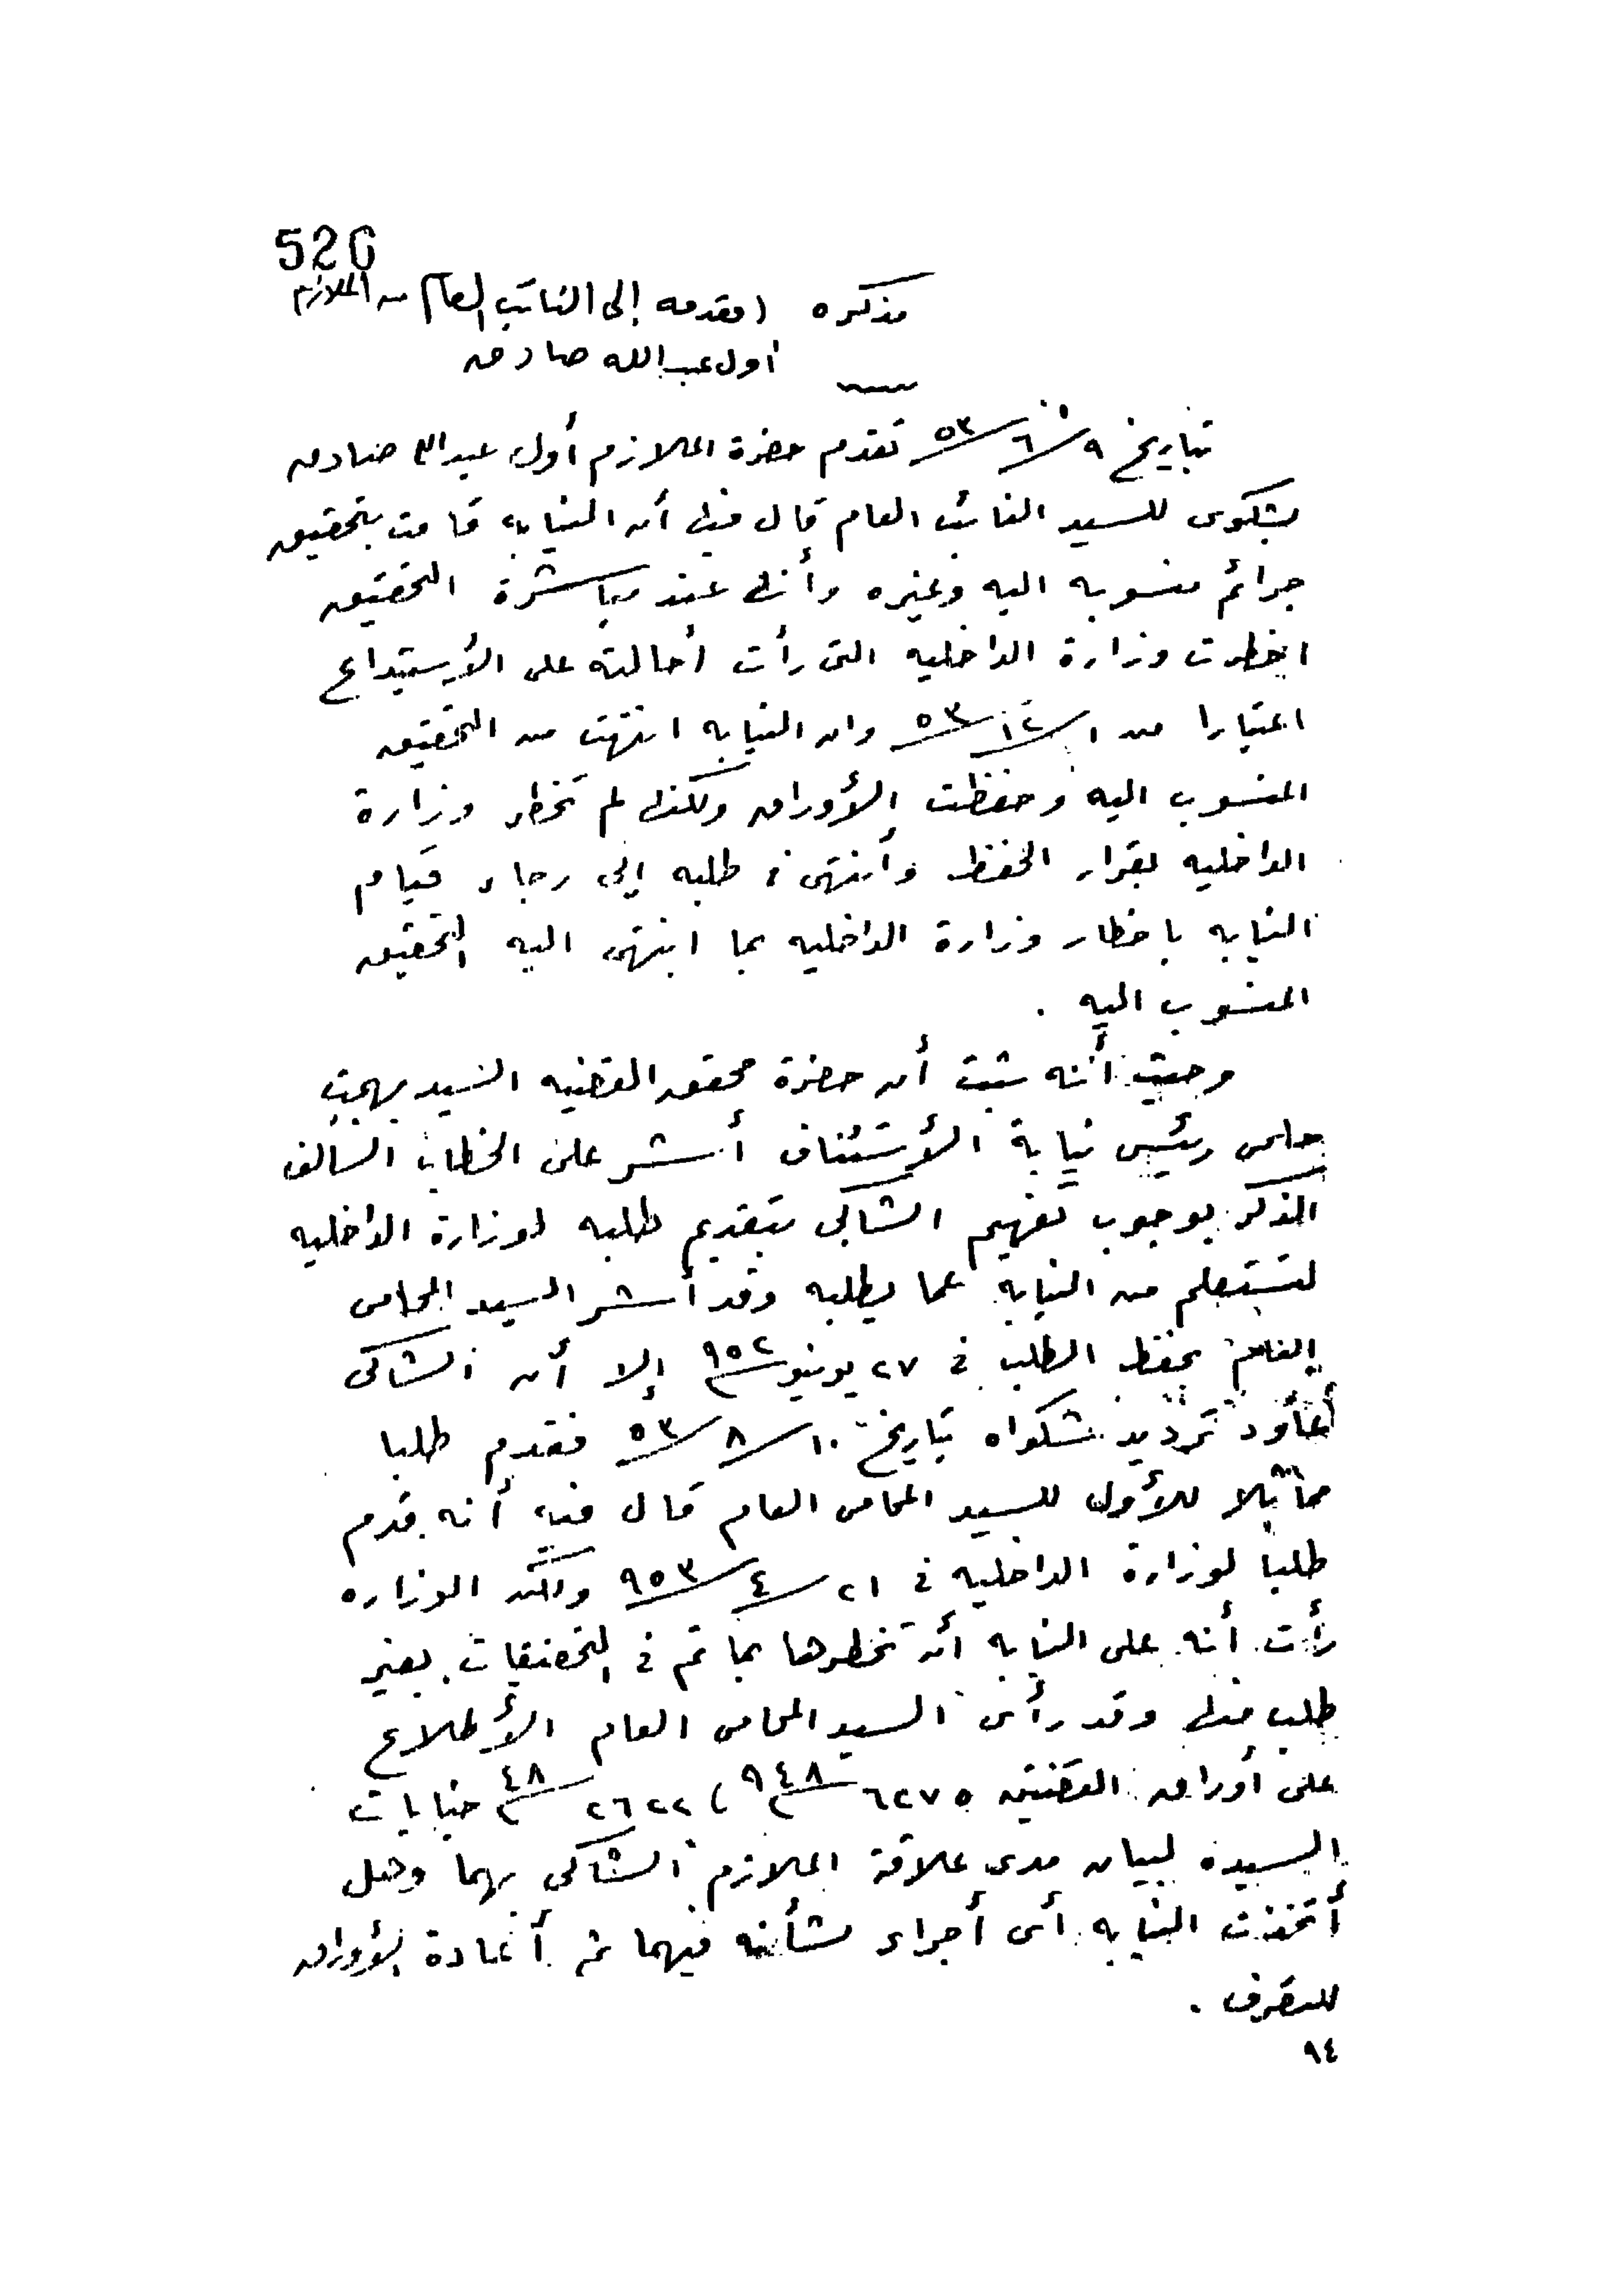 526
مذكره (مقدمه إلى النائب العام من الملازم
أول عبدالله صادق
بتاريخ ٩/٦/٥٣ تقدم حضرة الملازم أول عبدالله صادق
بشكوى للسيد النائب العام قال فيها أن النيابه قامت بتحقيق
جرائم منسوبه اليه وغيره وأنها عند مباشرة التحقيق
اخطرت وزارة الداخليه التى رأت أحالته على الأستيداع
اعتبارا من ١/١٢/٥٣ وان النيابه انتهت من التحقيق
المنسوب اليه وحفظت الأوراق ولكنها لم تخطر وزارة
الداخليه بقرار الحفظ وأنتهى فى طلبه إلى رجاء قيام
النيابه باخطار وزارة الداخليه بما انتهى اليه التحقيق
المنسوب اليه .
وحيث أنه ثبت أن حضرة محقق القضيه السيد بهجت
حلمى رئيس نيابة الأستئناف أشر على الخطاب السالف
الذكر بوجوب تفهيم الشاكى بتقديم طلبه لوزارة الداخليه
لتستعلم من النيابه عما يطلبه وقد أشر السيد المحامى
العام بحفظ الطلب فى ٢٧ يونيو ٩٥٢ إلا أن الشاكى
أعاود ترديد شكواه بتاريخ ١٠/٨/٥٣ فقدم طلبا
مماثلا للأول للسيد المحامى العام قال فيه أنه قدم
طلبا لوزارة الداخليه فى ٢١/٤/٩٥٣ ولكن الوزاره
رأت أنه على النيابه أن تخطرها بما تم فى التحقيقات بغير
طلب منها وقد رأى السيد المحامى العام الأطلاع
على أوراق القضيتين ٦٢٧٥ / ٩٤٨ ، ٢٦٢٢ / ٤٨ جنايات
السيده لبيان مدى علاقة الملازم الشاكى بهما وهل
أتخذت النيابه أى أجراء بشأنه فيهما ثم أعادة الأوراق
للتصرف .
٩٤